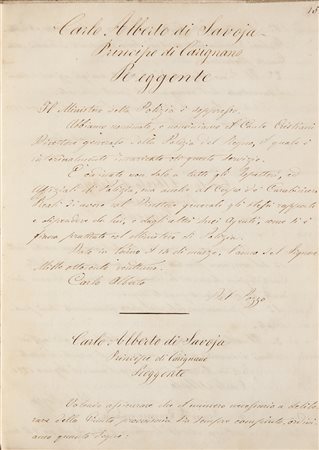 15
Carlo Alberto di Savoja
Principe di Carignano
Reggente
Il Ministero della Polizia è soppresso.
Abbiamo nominato, e nominiamo il Conte Cristiani
Direttore generale della Polizia del Regno, il quale è
interinalmente incaricato di questo servizio.
È derivato non solo a tutti gli Ispettori, ed
Uffiziali di Polizia, ma anche al Corpo de' Carabinieri
Reali di avere col Direttore generale gli stessi rapporti
e dipendere da lui, e dagli altri suoi Agenti, come si è
finora praticato col Ministero di Polizia.
Dato in Torino il 14 di marzo, l'anno del Signore
Mille ottocento ventuno.
Carlo Alberto
Dal Pozzo
Carlo Alberto di Savoja
Principe di Carignano
Reggente
Volendo assicurare che il numero necessario a delibe
rare della Giunta provvisoria sia sempre compiuto, ordini
amo quanto segue: